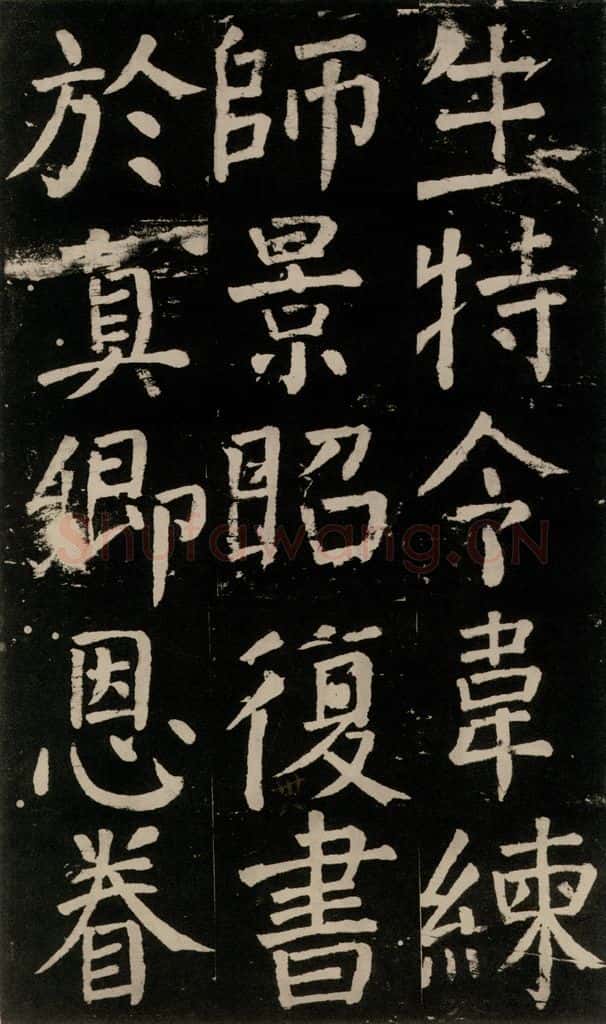 生特令韋練
師景昭復書
於真卿恩眷
Shufawang.CN